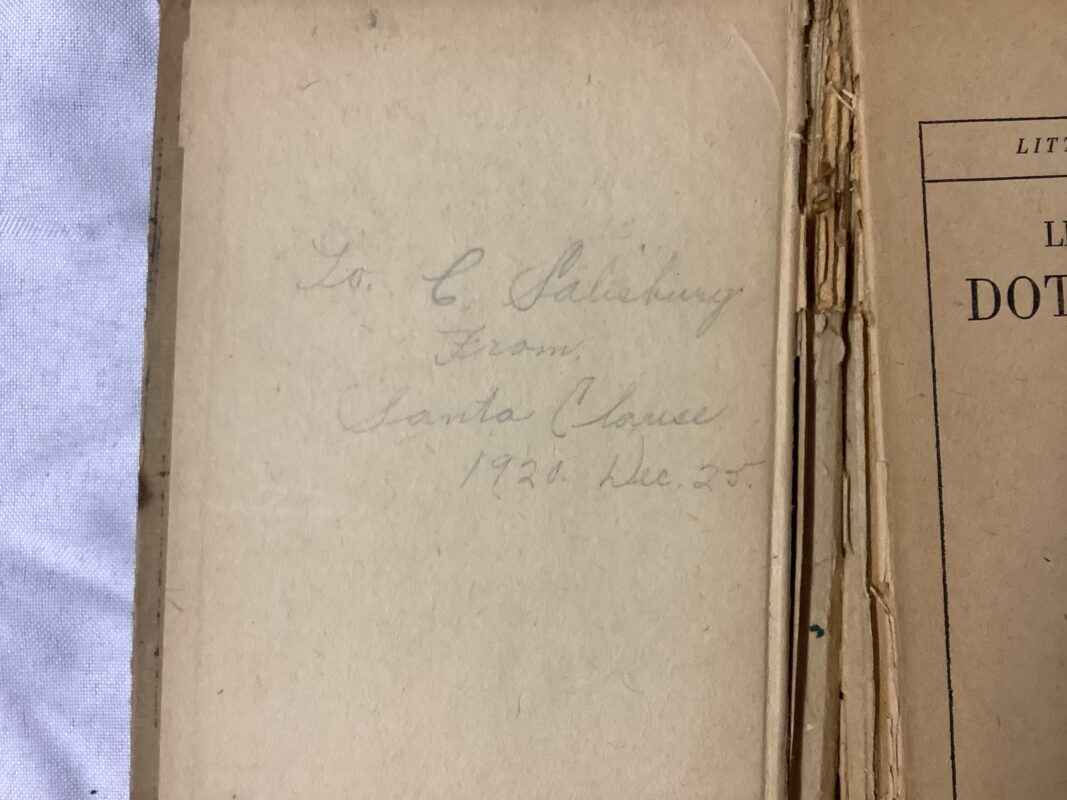 To. C. Salisbury
From.
Santa Clause
1920. Dec. 25.
LITT
LI
DOT